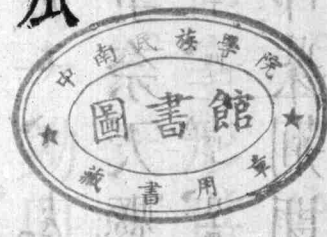 中南民族學院
圖書館
藏書用章